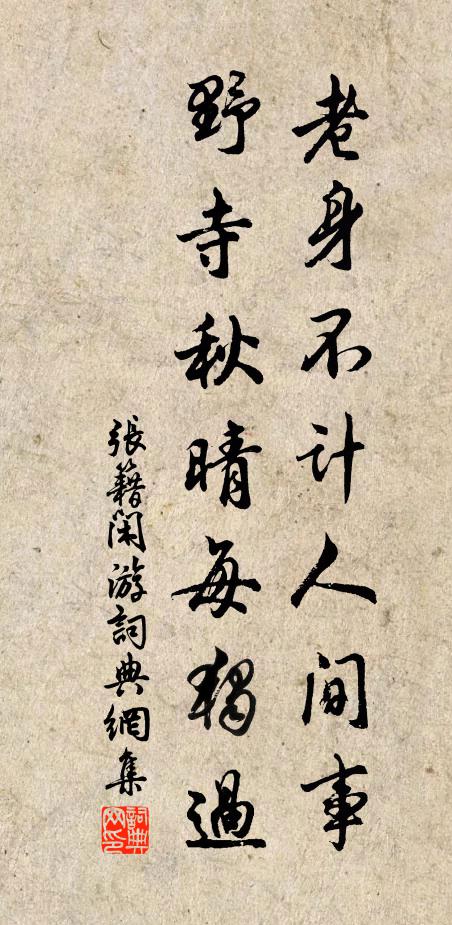 老身不计人间事
野寺秋晴每独過
張籍閑游詞典網集
詞典网印